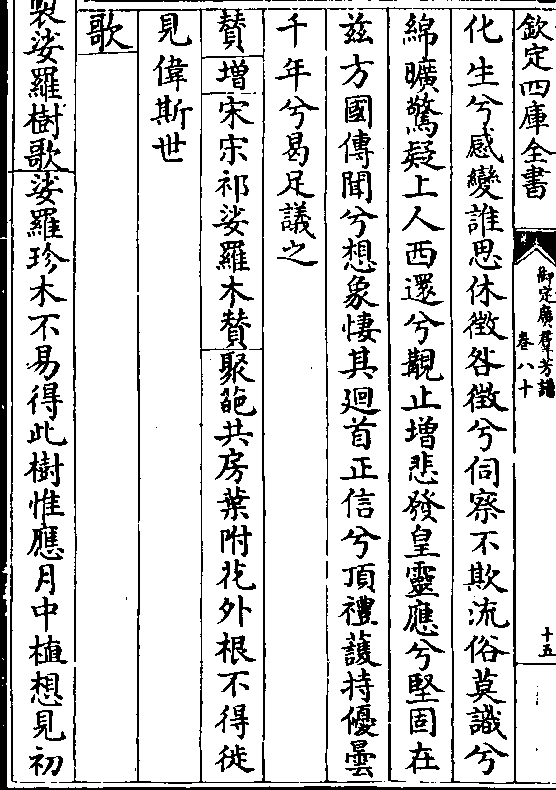 欽定四庫全書
御定廣羣芳譜
卷八十
十五
化生兮感變誰思休徵咎徵兮伺察不欺流俗莫識兮
綿曠驚疑上人西還兮覯止增悲發皇靈應兮堅固在
兹方國傳聞兮想象悽其廻首正信兮頂禮䕶持優曇
千年兮曷足議之
贊增宋宋祁娑羅木贊聚葩共房葉附花外根不得徙
見偉斯世
歌
製娑羅樹歌娑羅珍木不易得此樹惟應月中植想見初